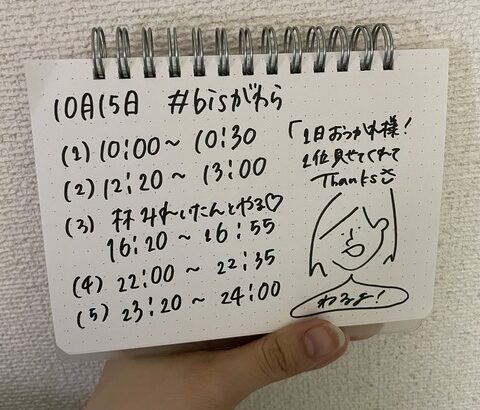 10月15日 #bisがわら
(1) 10:00〜10:30
(2) 12:20〜13:00
(3) 林みれいたんとやる♡
16:20〜16:55
(4) 22:00〜22:35
(5) 23:20〜24:00
「1日おつかれ様!
1位見せてくれて
Thanks
わるよ!